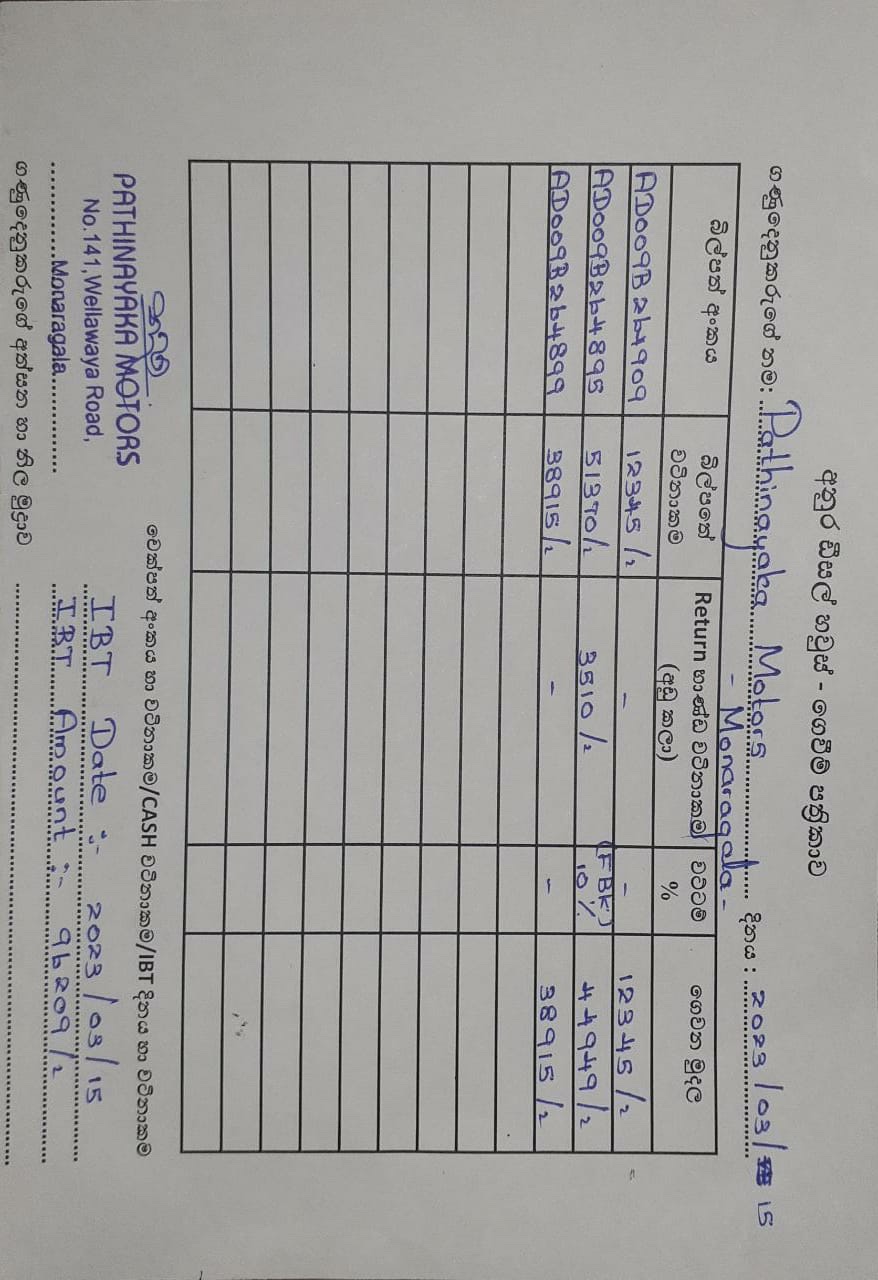 අනුර ඩීසල් හවුස් - ගෙවීම් පත්‍රිකාව
ගණුදෙනුකරුගේ නම: Pathinayaka Motors දිනය : 2023/03/15
- Monaragala -
බිල්පත් අංකය බිල්පතේ වටිනාකම Return භාණ්ඩ වටිනාකම (අඩු කලා) වට්ටම් % ගෙවන මුදල
AD009B264909 12345/= - - 12345/=
AD009B264895 51370/= 3510/= (FBK) 10% 44949/=
AD009B264899 38915/= - - 38915/=
චෙක්පත් අංකය හා වටිනාකම/CASH වටිනාකම/IBT දිනය හා වටිනාකම
PATHINAYAKA MOTORS
No.141,Wellawaya Road,
Monaragala.
IBT Date :- 2023/03/15
IBT Amount :- 96209/=
ගණුදෙනුකරුගේ අත්සන හා නිල මුද්‍රාව